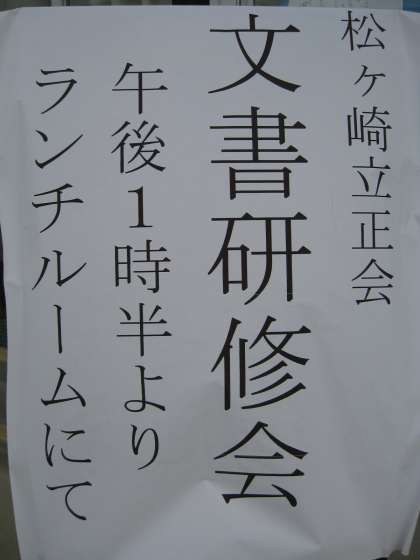 松ヶ崎立正会
文書研修会
午後1時半より
ランチルームにて